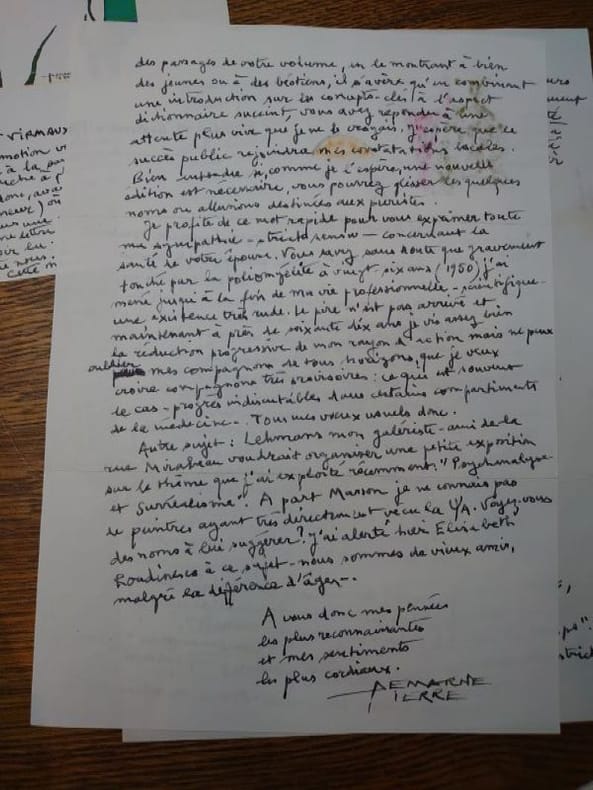 des passages de votre volume, en le montrant à bien
des jeunes ou à des béotiens, il s'avère qu'en combinant
une introduction sur les concepts-clés à l'aspect
dictionnaire succint, vous avez répondu à une
attente plus vive que je ne le croyais. J'espère que ce
succès public rejoindra mes constatations locales.
Bien entendu si, comme je l'espère, une nouvelle
édition est nécessaire, vous pourrez glisser les quelques
noms ou allusions destinées aux puristes.
Je profite de ce mot rapide pour vous exprimer toute
ma sympathie - stricto sensu - concernant la
santé de votre épouse. Vous savez sans doute que gravement
touché par la poliomyélite à vingt six ans (1950) j'ai
mené jusqu'à la fin de ma vie professionnelle - scientifique -
une existence très rude. Le pire n'est pas arrivé et
maintenant à près de soixante dix ans je vis assez bien
la réduction progressive de mon rayon d'action mais ne peux
oublier mes compagnons de tous horizons, que je veux
croire compagnons très provisoires : ce qui est souvent
le cas - progrès indiscutables dans certains compartiments
de la médecine -. Tous mes vœux usuels donc.
Autre sujet : Lehmans mon galeriste - ami de la
rue Mirabeau voudrait organiser une petite exposition
sur le thème que j'ai exploité récemment : "Psychanalyse
et Surréalisme". A part Masson je ne connais pas
de peintres ayant très directement vécu la Voyez-vous
des noms à lui suggérer ? J'ai alerté hier Elisabeth
Roudinesco à ce sujet - nous sommes de vieux amis,
malgré la différence d'âges -.
A vous donc mes pensées
les plus reconnaissantes
et mes sentiments
les plus cordiaux.
DEMARNE
PIERRE